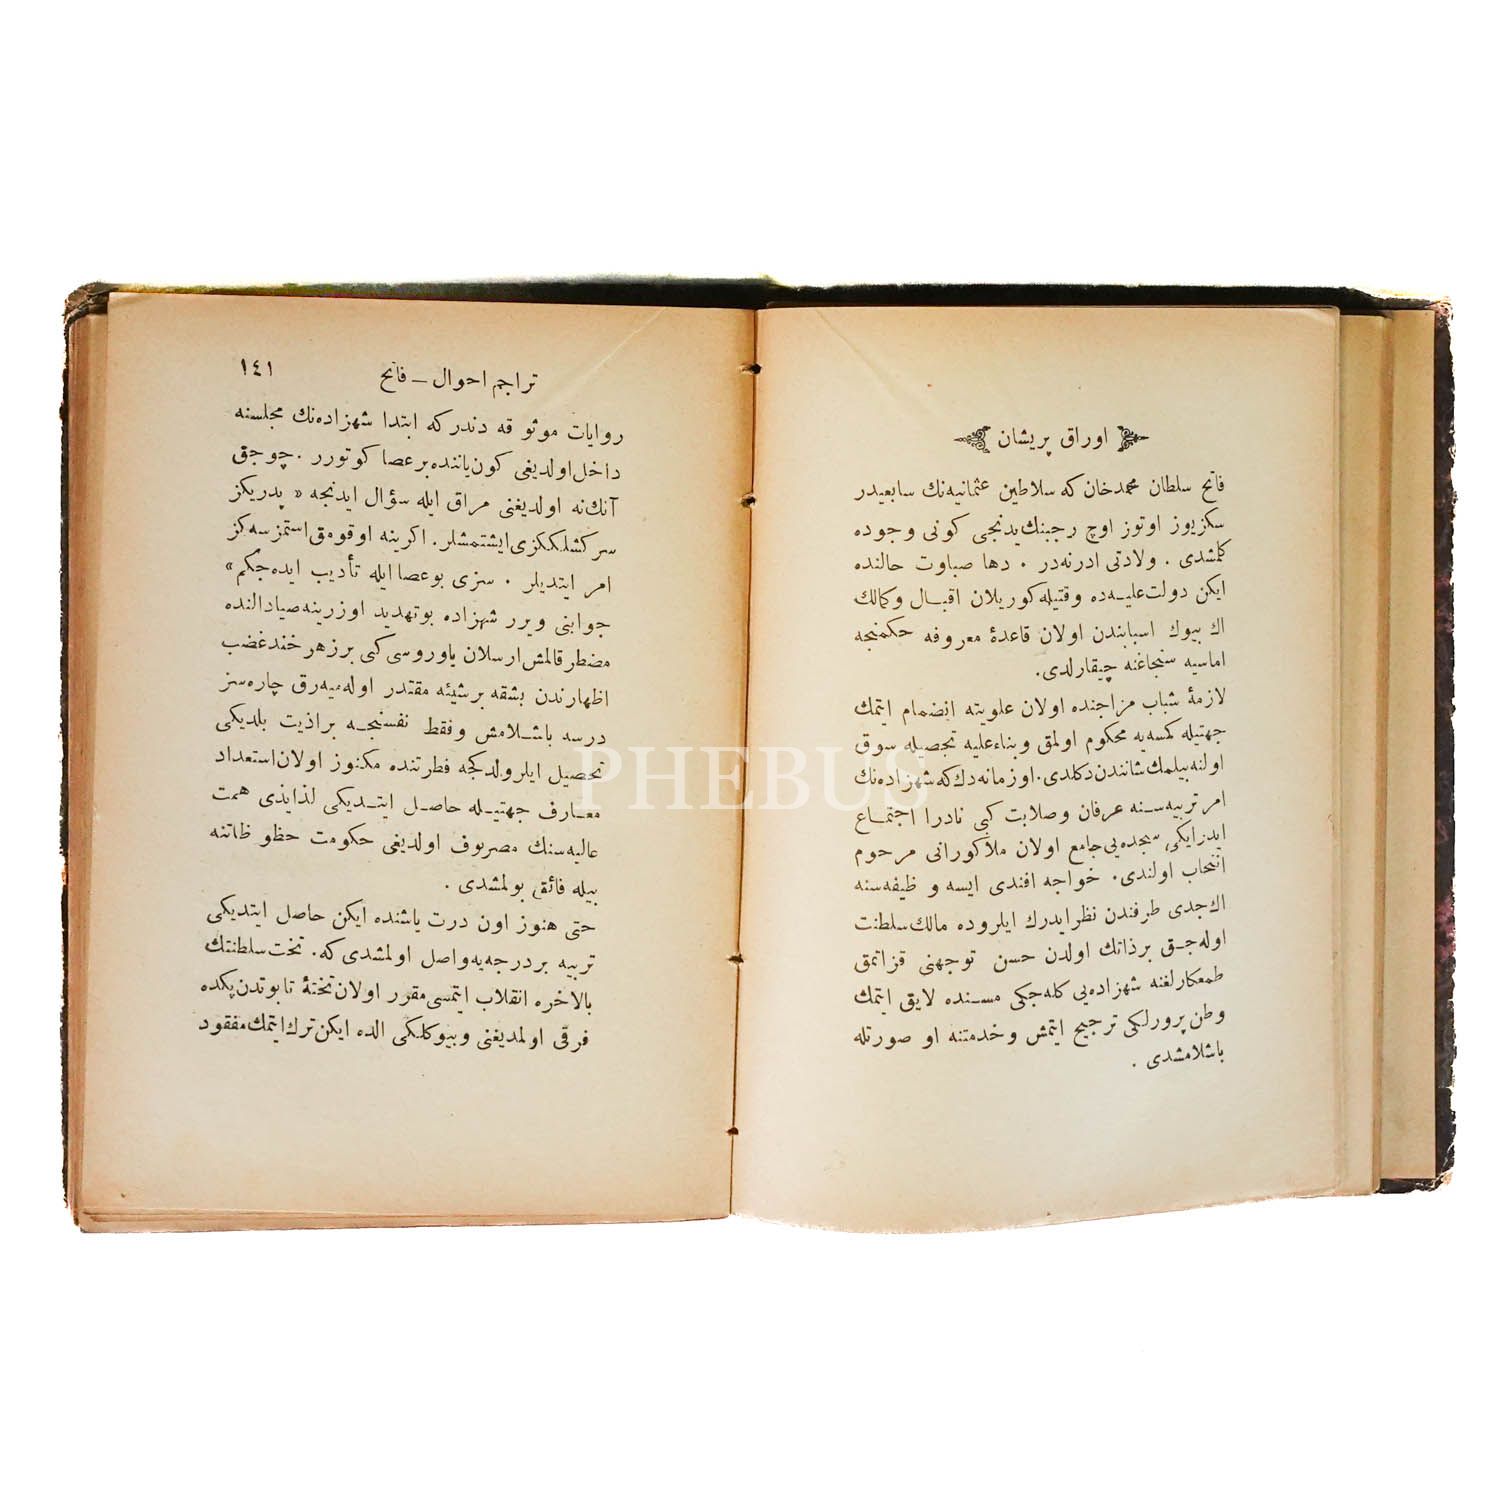 اوراق پریشان
فاتح سلطان محمدخان که سلاطین عثمانیه‌نك سابعیدر
سکزیوز اوتوز اوچ رجبنك یدنجی کونی وجوده
کلمشدی . ولادتی ادرنه‌در . دها صباوت حالنده
ایکن دولت علیـه‌ده وقتیله کوریلان اقبال وکمالك
اك بیوك اسبابندن اولان قاعدۀ معروفه حکمنجه
اماسیه سنجاغنه چیقارلدی.
لازمۀ شباب مزاجنده اولان علویته انضمام ایتمك
جهتیله کمسه‌یه محکوم اولمق وبناءعلیه تحصیله سوق
اولنه‌بیلمك شانندن دکلدی. اوزمانه‌دك که شهزاده‌نك
امر تربیه‌سـنه عرفان وصلابت کبی نادرا اجتمـاع
ایدر ایکی سجده‌یی جامع اولان ملاکورانی مرحوم
انتخاب اولندی. خواجه افندی ایسه وظیفه‌سنه
اك جدی طرفندن نظر ایدرك ایلروده مالك سلطنت
اوله‌جـق برذاتك اولدن حسن توجهنی قزانمق
طمعکارلغنه شهزاده‌یی کله‌جکی مسـنده لایق ایتمك
وطن پرورلکی ترجیح ایتمش وخدمتنه او صورتله
باشلامشدی .
تراجم احوال ــ فاتح ١٤١
روایات موثوقه دندرکه ابتدا شهزاده‌نك مجلسنه
داخل اولدیغی کون یاننده برعصا کوتورر . چوجق
آنك نه اولدیغنی مراق ایله سؤال ایدنجه « پدریکز
سرکشلککزی ایشتمشلر. اکرینه اوقومق استمزسه‌کز
امر ایتدیلر . سزی بوعصا ایله تأدیب ایده‌جکم »
جوابنی ویرر شهزاده بوتهدید اوزرینه صیادالنده
مضطر قالمش ارسلان یاوروسی کبی برزهر خند غضب
اظهارندن بشقه برشیئه مقتدر اوله‌میه‌رق چاره‌سز
درسه باشـلامش وفقط نفسنجـه براذیت بلدیکی
تحصیل ایلرولدکجه فطرتنده مکنوز اولان استعداد
معـارف جهتیـله حاصـل ایتـدیکی لذایذی همت
عالیه‌سنك مصروف اولدیغی حکومت حظوظاتنه
بیله فائق بولمشدی .
حتی هنوز اون درت یاشنده ایکن حاصل ایتدیکی
تربیه بردرجه‌یه واصل اولمشدی که. تخت سلطنتك
بالاخره انقلاب ایتمسی مقرر اولان تختۀ تابوتدن پکده
فرقی اولمدیغنی وبیوکلکی الده ایکن ترك ایتمك مفقود
PHEBUS